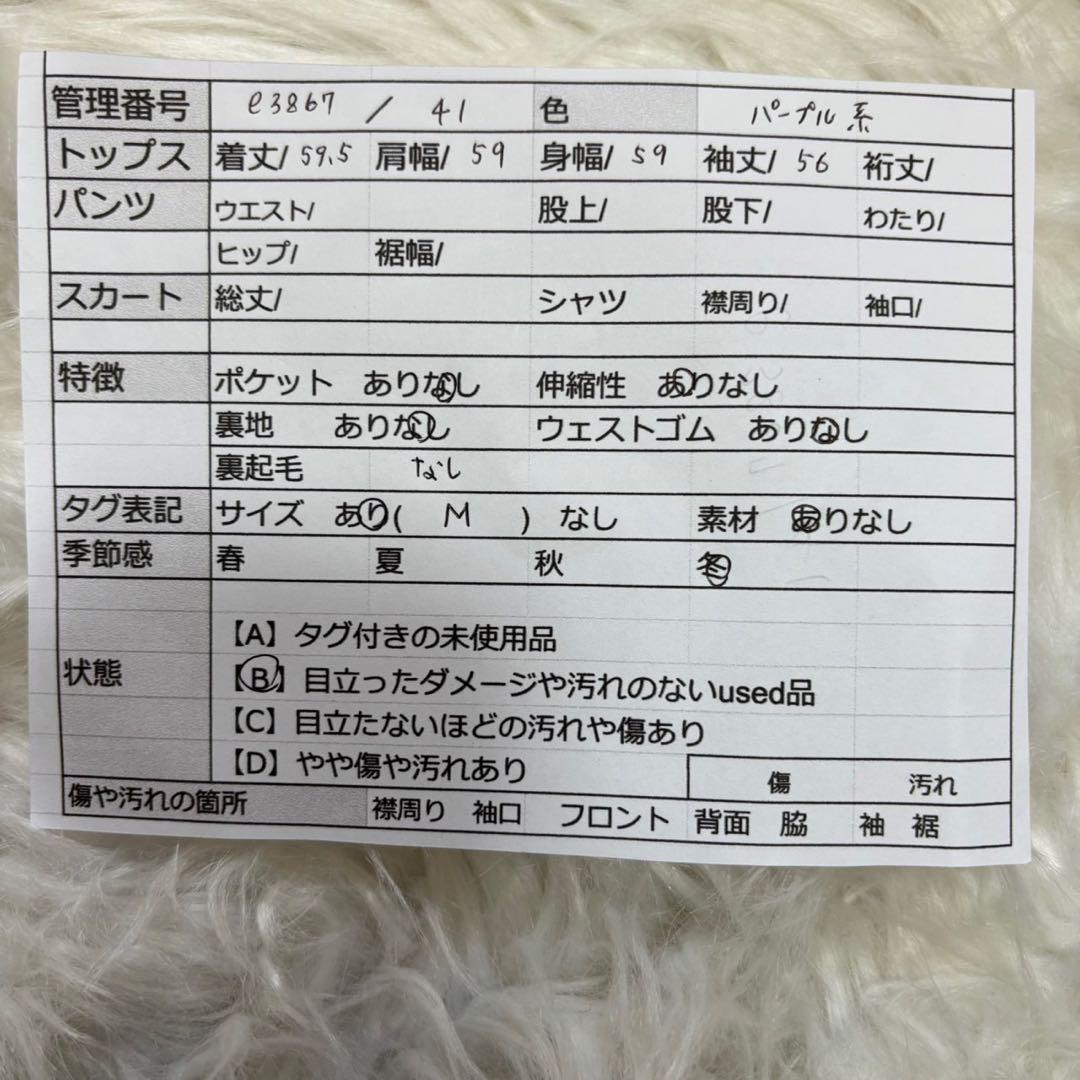 管理番号 e3867 / 41 色 パープル系
トップス 着丈/ 59.5 肩幅/ 59 身幅/ 59 袖丈/ 56 裄丈/
パンツ ウエスト/ 股上/ 股下/ わたり/
ヒップ/ 裾幅/
スカート 総丈/ シャツ 襟周り/ 袖口/
特徴 ポケット ありなし 伸縮性 ありなし
裏地 ありなし ウェストゴム ありなし
裏起毛 なし
タグ表記 サイズ あり( M ) なし 素材 ありなし
季節感 春 夏 秋 冬
状態
【A】タグ付きの未使用品
【B】目立ったダメージや汚れのないused品
【C】目立たないほどの汚れや傷あり
【D】やや傷や汚れあり
傷 汚れ
傷や汚れの箇所 襟周り 袖口 フロント 背面 脇 袖 裾